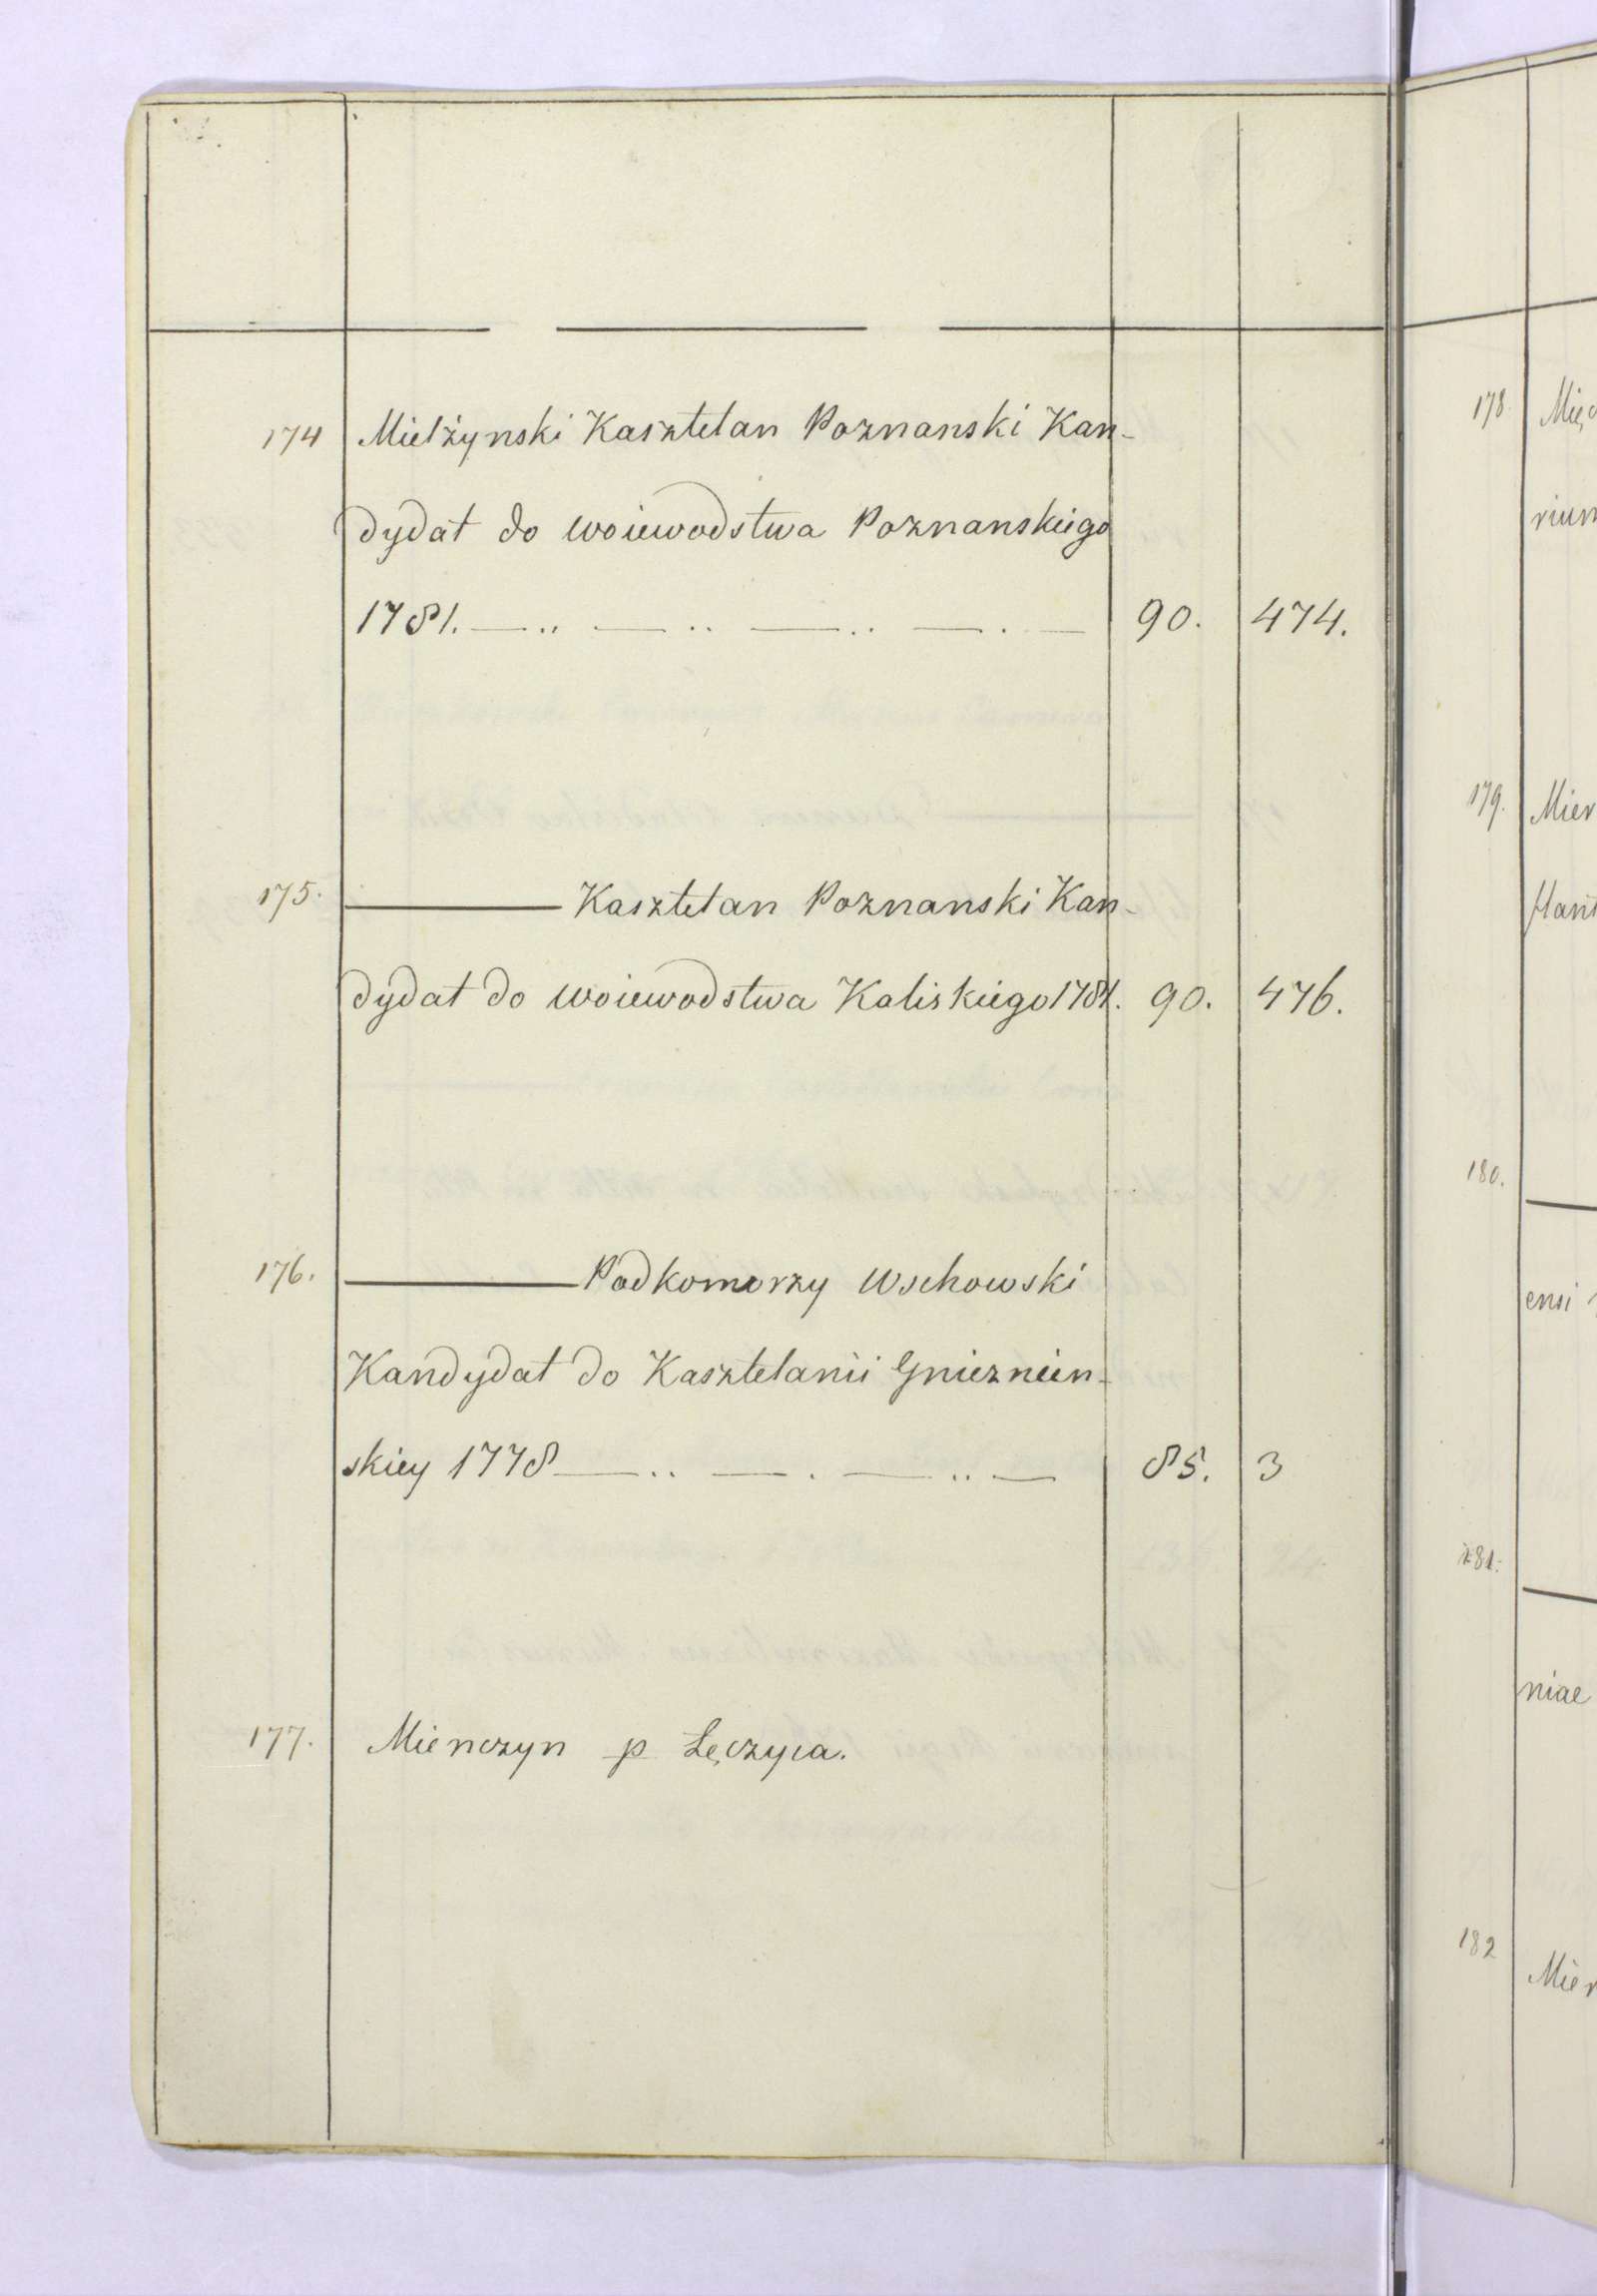 174 Mielżynski Kasztelan Poznanski Kan-
dydat do woiewodstwa Poznanskiego
1781. —.. —.. —.. —. — 90. 474.
175. ——— Kasztelan Poznanski Kan-
dydat do woiewodstwa Kaliskiego 1781. 90. 476.
176. ——— Podkomorzy Wschowski
Kandydat do Kasztelanii Gnieznien-
skiey 1778 —.. —. —.. — 85. 3
177. Mienczyn p Łęczyca.
178.
rium
179. Mier
180.
ensi
181.
niae
182 Mier